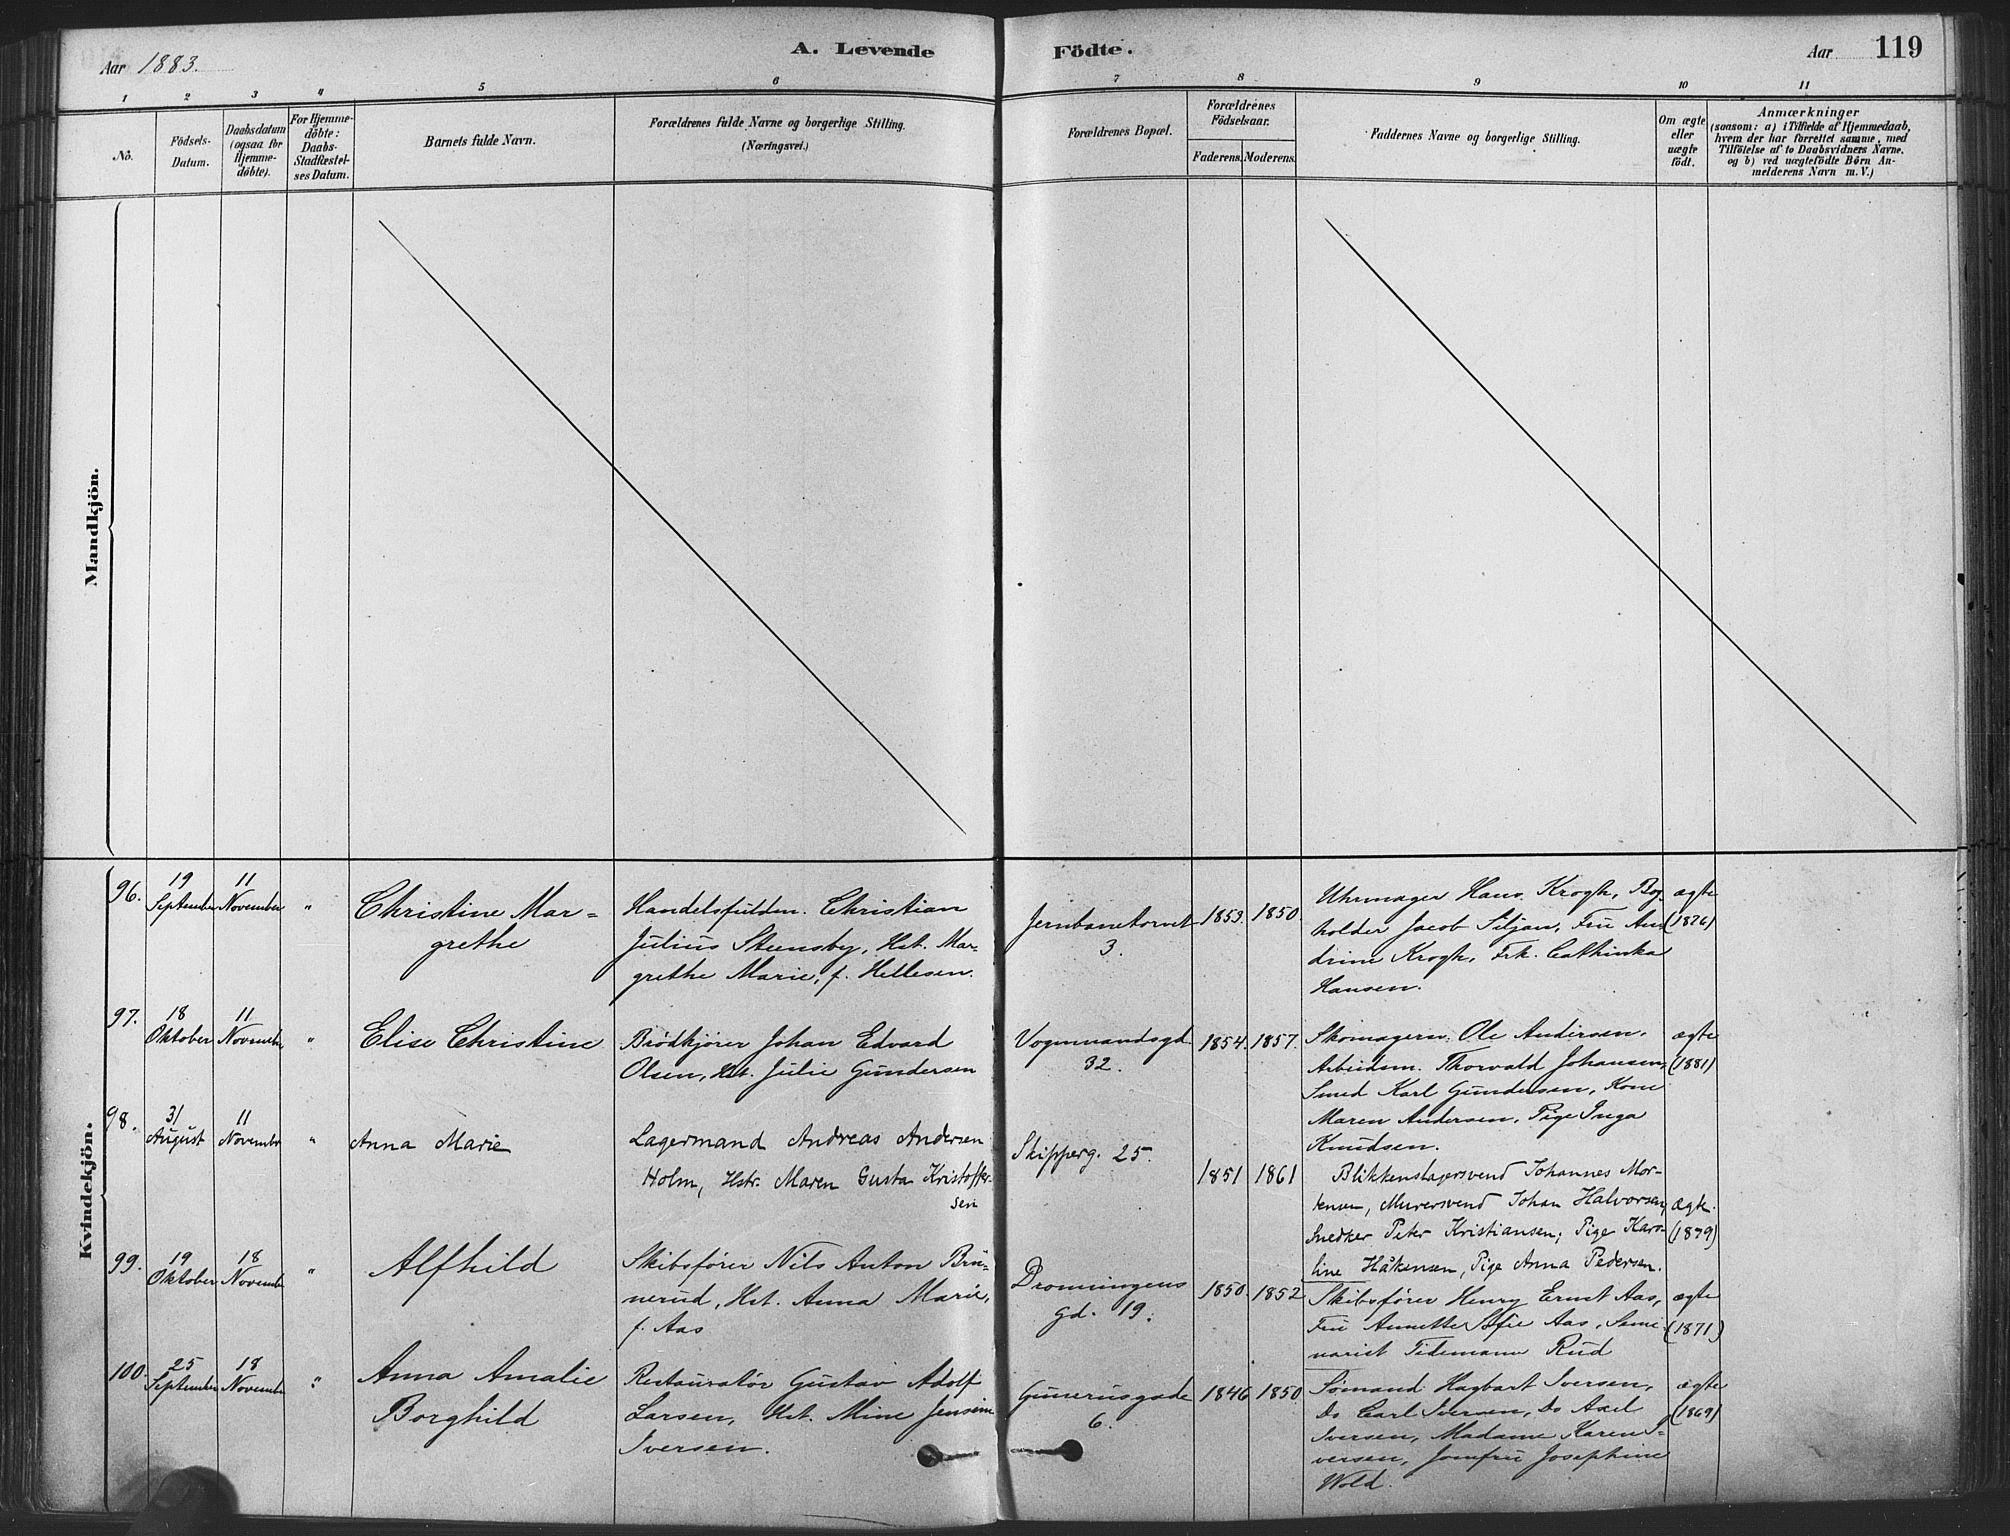 A. Levende Födte.
119
Aar 1883.
Aar
1 2 3 4 5 6 7 8 9 10 11
No.
Födsels-
Datum.
Daabsdatum
(ogsaa for
Hjemme-
döbte).
For Hjemme-
döbte:
Daabs-
Stadfæstel-
ses Datum.
Barnets fulde Navn.
Forældrenes fulde Navne og borgerlige Stilling.
(Næringsvei.)
Forældrenes Bopæl.
Forældrenes
Födselsaar.
Faderens. Moderens.
Faddernes Navne og borgerlige Stilling.
Om ægte
eller
uægte
födt.
Anmærkninger
(saasom: a) i Tilfælde af Hjemmedaab,
hvem der har forrettet samme, med
Tilföielse af to Daabsvidners Navne.
og b) ved uægtefödte Börn An-
melderens Navn m. V.)
Mandkjön.
Kvindekjön.
96.
19
September
11
November
"
Christine Mar-
grethe
Handelsfuldm. Christian
Julius Steensby, Hst. Mar-
grethe Marie, f. Hellesen.
Jernbanetorvet
3.
1853. 1850.
Uhrmager Hans Krogh, Bog-
holder Jacob Siljan, Fru An-
drine Krogh, Frk. Cathinka
Hansen.
ægte
(1876)
97.
18
Oktober
11
November
"
Elise Christine
Brödkjörer Johan Edvard
Olsen, Hst. Julie Gundersen
Vognmandsgd.
32.
1854. 1857.
Skomagersv. Ole Andersen,
Arbeidsm. Thorvald Johansen,
Smed Karl Gundersen, Kone
Maren Andersen, Pige Inga
Knudsen.
ægte
(1881)
98.
31
August
11
Novembr
"
Anna Marie
Lagermand Andreas Andersen
Holm, Hstr. Maren Gusta Kristoffer-
sen
Skipperg. 25.
1851 1861
Blikkenslagersvend Johannes Mor-
tensen, Murersvend Johan Halvorsen,
Snedker Peter Kristiansen; Pige Karo-
line Håkensen, Pige Anna Pedersen.
Ægte.
(1879)
99.
19
Oktober
18
Novembr
"
Alfhild
Skibsförer Nils Anton Brü-
nerud, Hst. Anna Marie,
f. Aas
Dronningens
gd. 19.
1850. 1852
Skibsförer Henry Ernst Aas,
Fru Annette Sofie Aas, Semi-
narist Tidemann Rud
ægte
(1871)
100.
25
September
18
November
"
Anna Amalie
Borghild
Restauratör Gustav Adolf
Larsen, Hst. Mine Jensine
Iversen.
Gunerusgade
6.
1846 1850
Sömand Hagbart Iversen,
Do Carl Iversen, Do Axel
Iversen, Madame Karen I-
versen, Jomfru Josephine
Wold.
ægte
(1869)